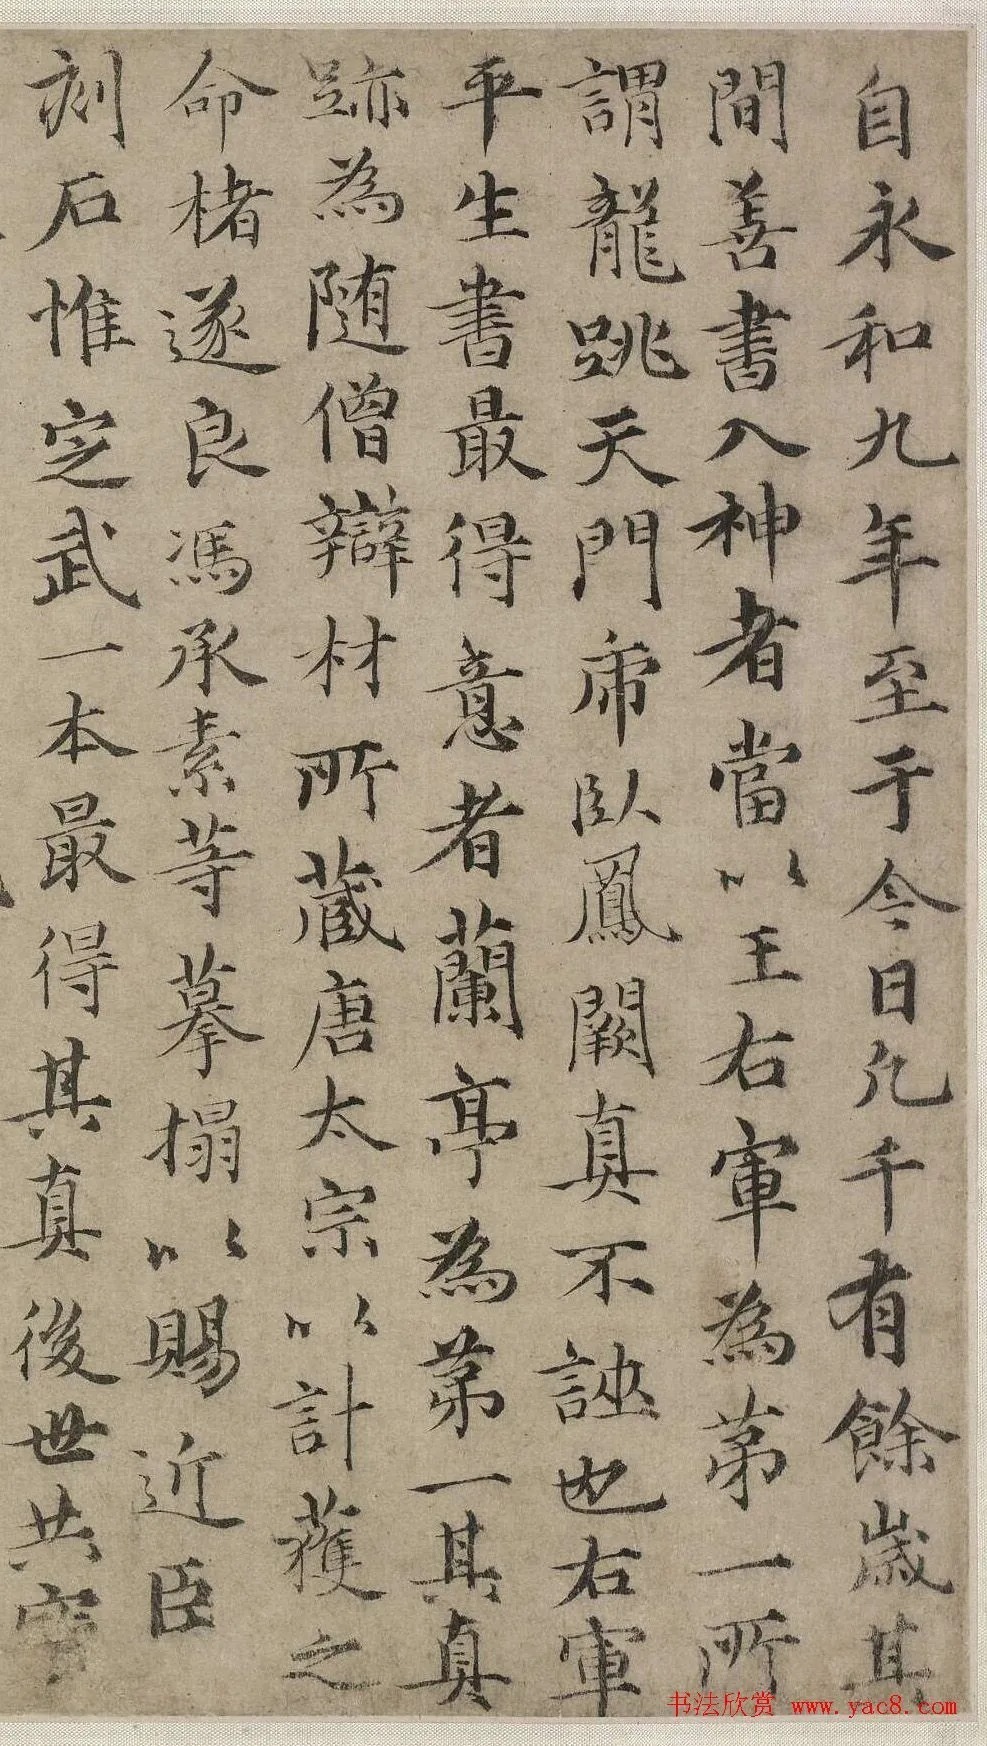 自永和九年至于今日凡千有餘歲其
間善書入神者當以王右軍為第一所
謂龍跳天門虎臥鳳闕真不誣也右軍
平生書最得意者蘭亭為第一其真
跡為随僧辯材所藏唐太宗以計獲之
命楮遂良馮承素等摹搨以賜近臣
刻石惟定武一本最得其真後世共寶
书法欣赏 www.yac8.com